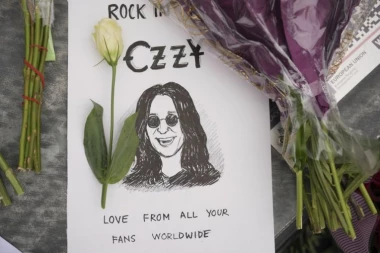 ROCK IN
OZZY
LOVE FROM ALL YOUR
FANS WORLDWIDE
EUROPEAN UNION